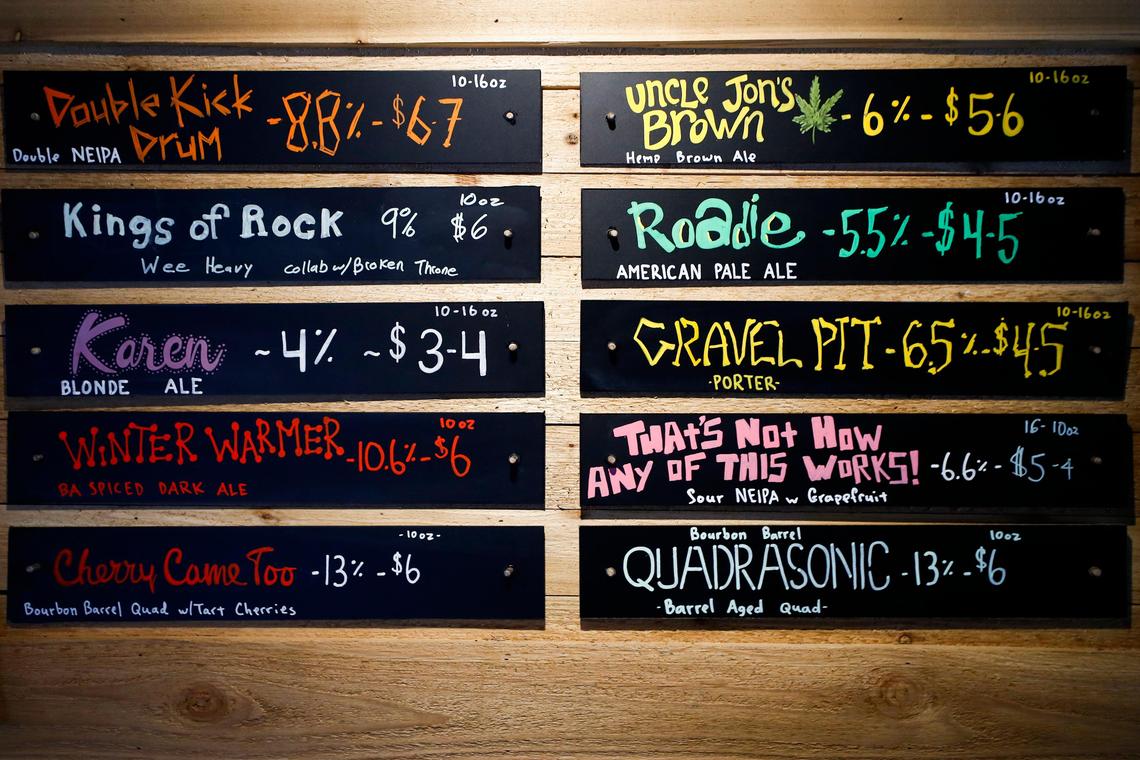 10-16oz
Double Kick
Drum -8.8% - $6-7
Double NEIPA
10oz
Kings of Rock 9% $6
Wee Heavy collab w/Broken Throne
10-16oz
Karen ~4% ~$3-4
BLONDE ALE
10oz
WiNTER WARMER -10.6% - $6
BA SPICED DARK ALE
-10oz-
Cherry Came Too -13% - $6
Bourbon Barrel Quad w/Tart Cherries
10-16oz
UNCLE JON'S
BROWN - 6% - $5-6
Hemp Brown Ale
10-16oz
Roadie -5.5% - $4-5
AMERICAN PALE ALE
10-16oz
GRAVEL PIT - 6.5% - $4-5
-PORTER-
16-10oz
THAt'S Not How
ANY OF THIS WORKS! -6.6% - $5-4
Sour NEIPA w Grapefruit
Bourbon Barrel
10oz
QUADRASONIC -13% - $6
-Barrel Aged Quad-